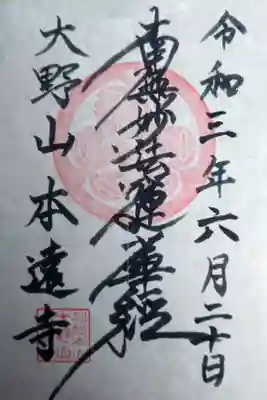 令和三年六月二十日
南無妙法蓮華経
大野山本遠寺